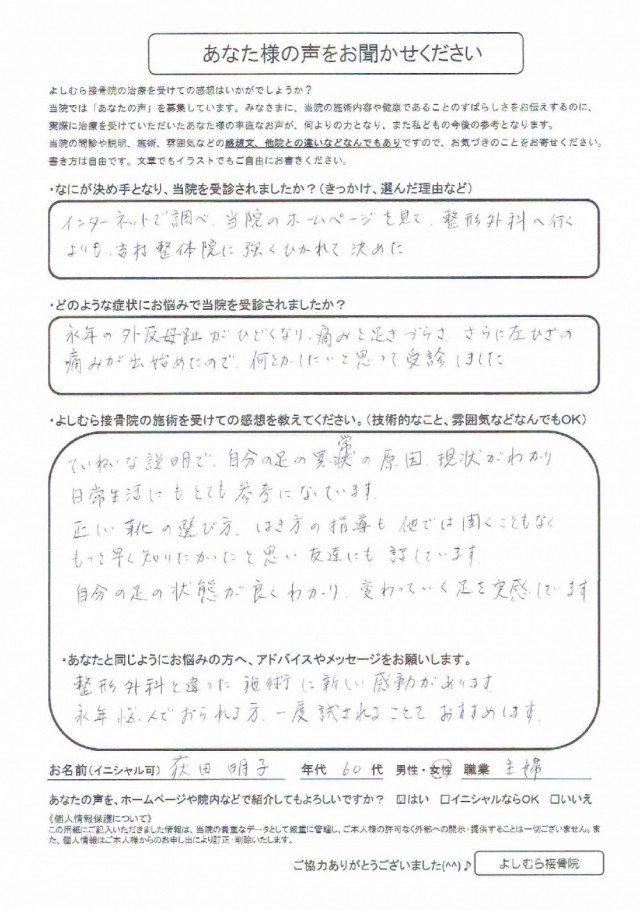 あなた様の声をお聞かせください
よしむら接骨院の治療を受けての感想はいかがでしょうか？
当院では「あなたの声」を募集しています。みなさまに、当院の施術内容や健康であることのすばらしさをお伝えするのに、
実際に治療を受けていただいたあなた様の率直なお声が、何よりの力となり、また私どもの今後の参考となります。
当院の問診や説明、施術、雰囲気などの感想文、他院との違いなどなんでもありですので、お気づきのことをお寄せください。
書き方は自由です。文章でもイラストでもご自由にお書きください。
・なにが決め手となり、当院を受診されましたか？（きっかけ、選んだ理由など）
インターネットで調べ、当院のホームページを見て、整形外科へ行く
よりも、吉村整体院に強くひかれて決めた
・どのような症状にお悩みで当院を受診されましたか？
永年の外反母趾がひどくなり、痛みと歩きづらさ、さらに左ひざの
痛みが出始めたので、何とかしたいと思って受診しました
・よしむら接骨院の施術を受けての感想を教えてください。（技術的なこと、雰囲気などなんでもOK）
ていねいな説明で、自分の足の異常の原因、現状がわかり
日常生活にもとても参考になっています。
正しい靴の選び方、はき方の指導も他では聞くこともなく
もっと早く知りたかったと思い友達にも話しています。
自分の足の状態が良くわかり、変わっていく足を実感しています
・あなたと同じようにお悩みの方へ、アドバイスやメッセージをお願いします。
整形外科と違った施術に新しい感動があります。
永年悩んでおられる方、一度試されることをおすすめします。
お名前（イニシャル可） 荻田明子 年代 60 代 男性・女性 職業 主婦
あなたの声を、ホームページや院内などで紹介してもよろしいですか？ ☑はい □イニシャルならOK □いいえ
《個人情報保護について》
この用紙にご記入いただきました情報は、当院の貴重なデータとして厳重に管理し、ご本人様の許可なく外部への開示・提供することは一切ございません。ま
た、個人情報はご本人様からのお申し出により訂正・削除いたします。
ご協力ありがとうございました(^^)♪ よしむら接骨院